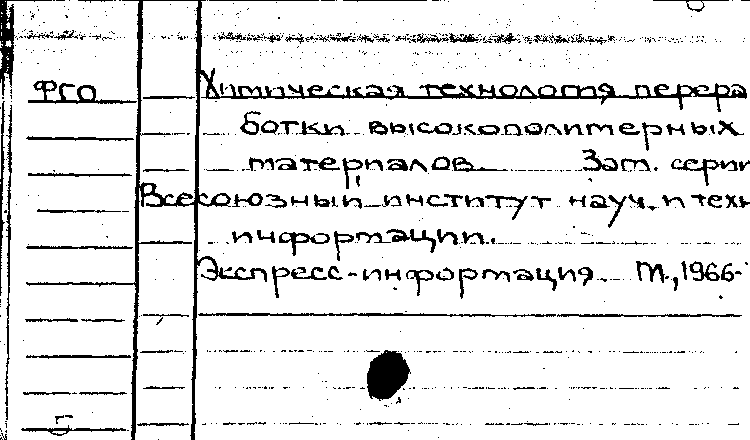 ФГО Химическая технология перера
ботки высокополимерных
материалов. Заг. серии
Всесоюзный институт науч. и техн
информации.
Экспресс-информация. М., 1966-
5